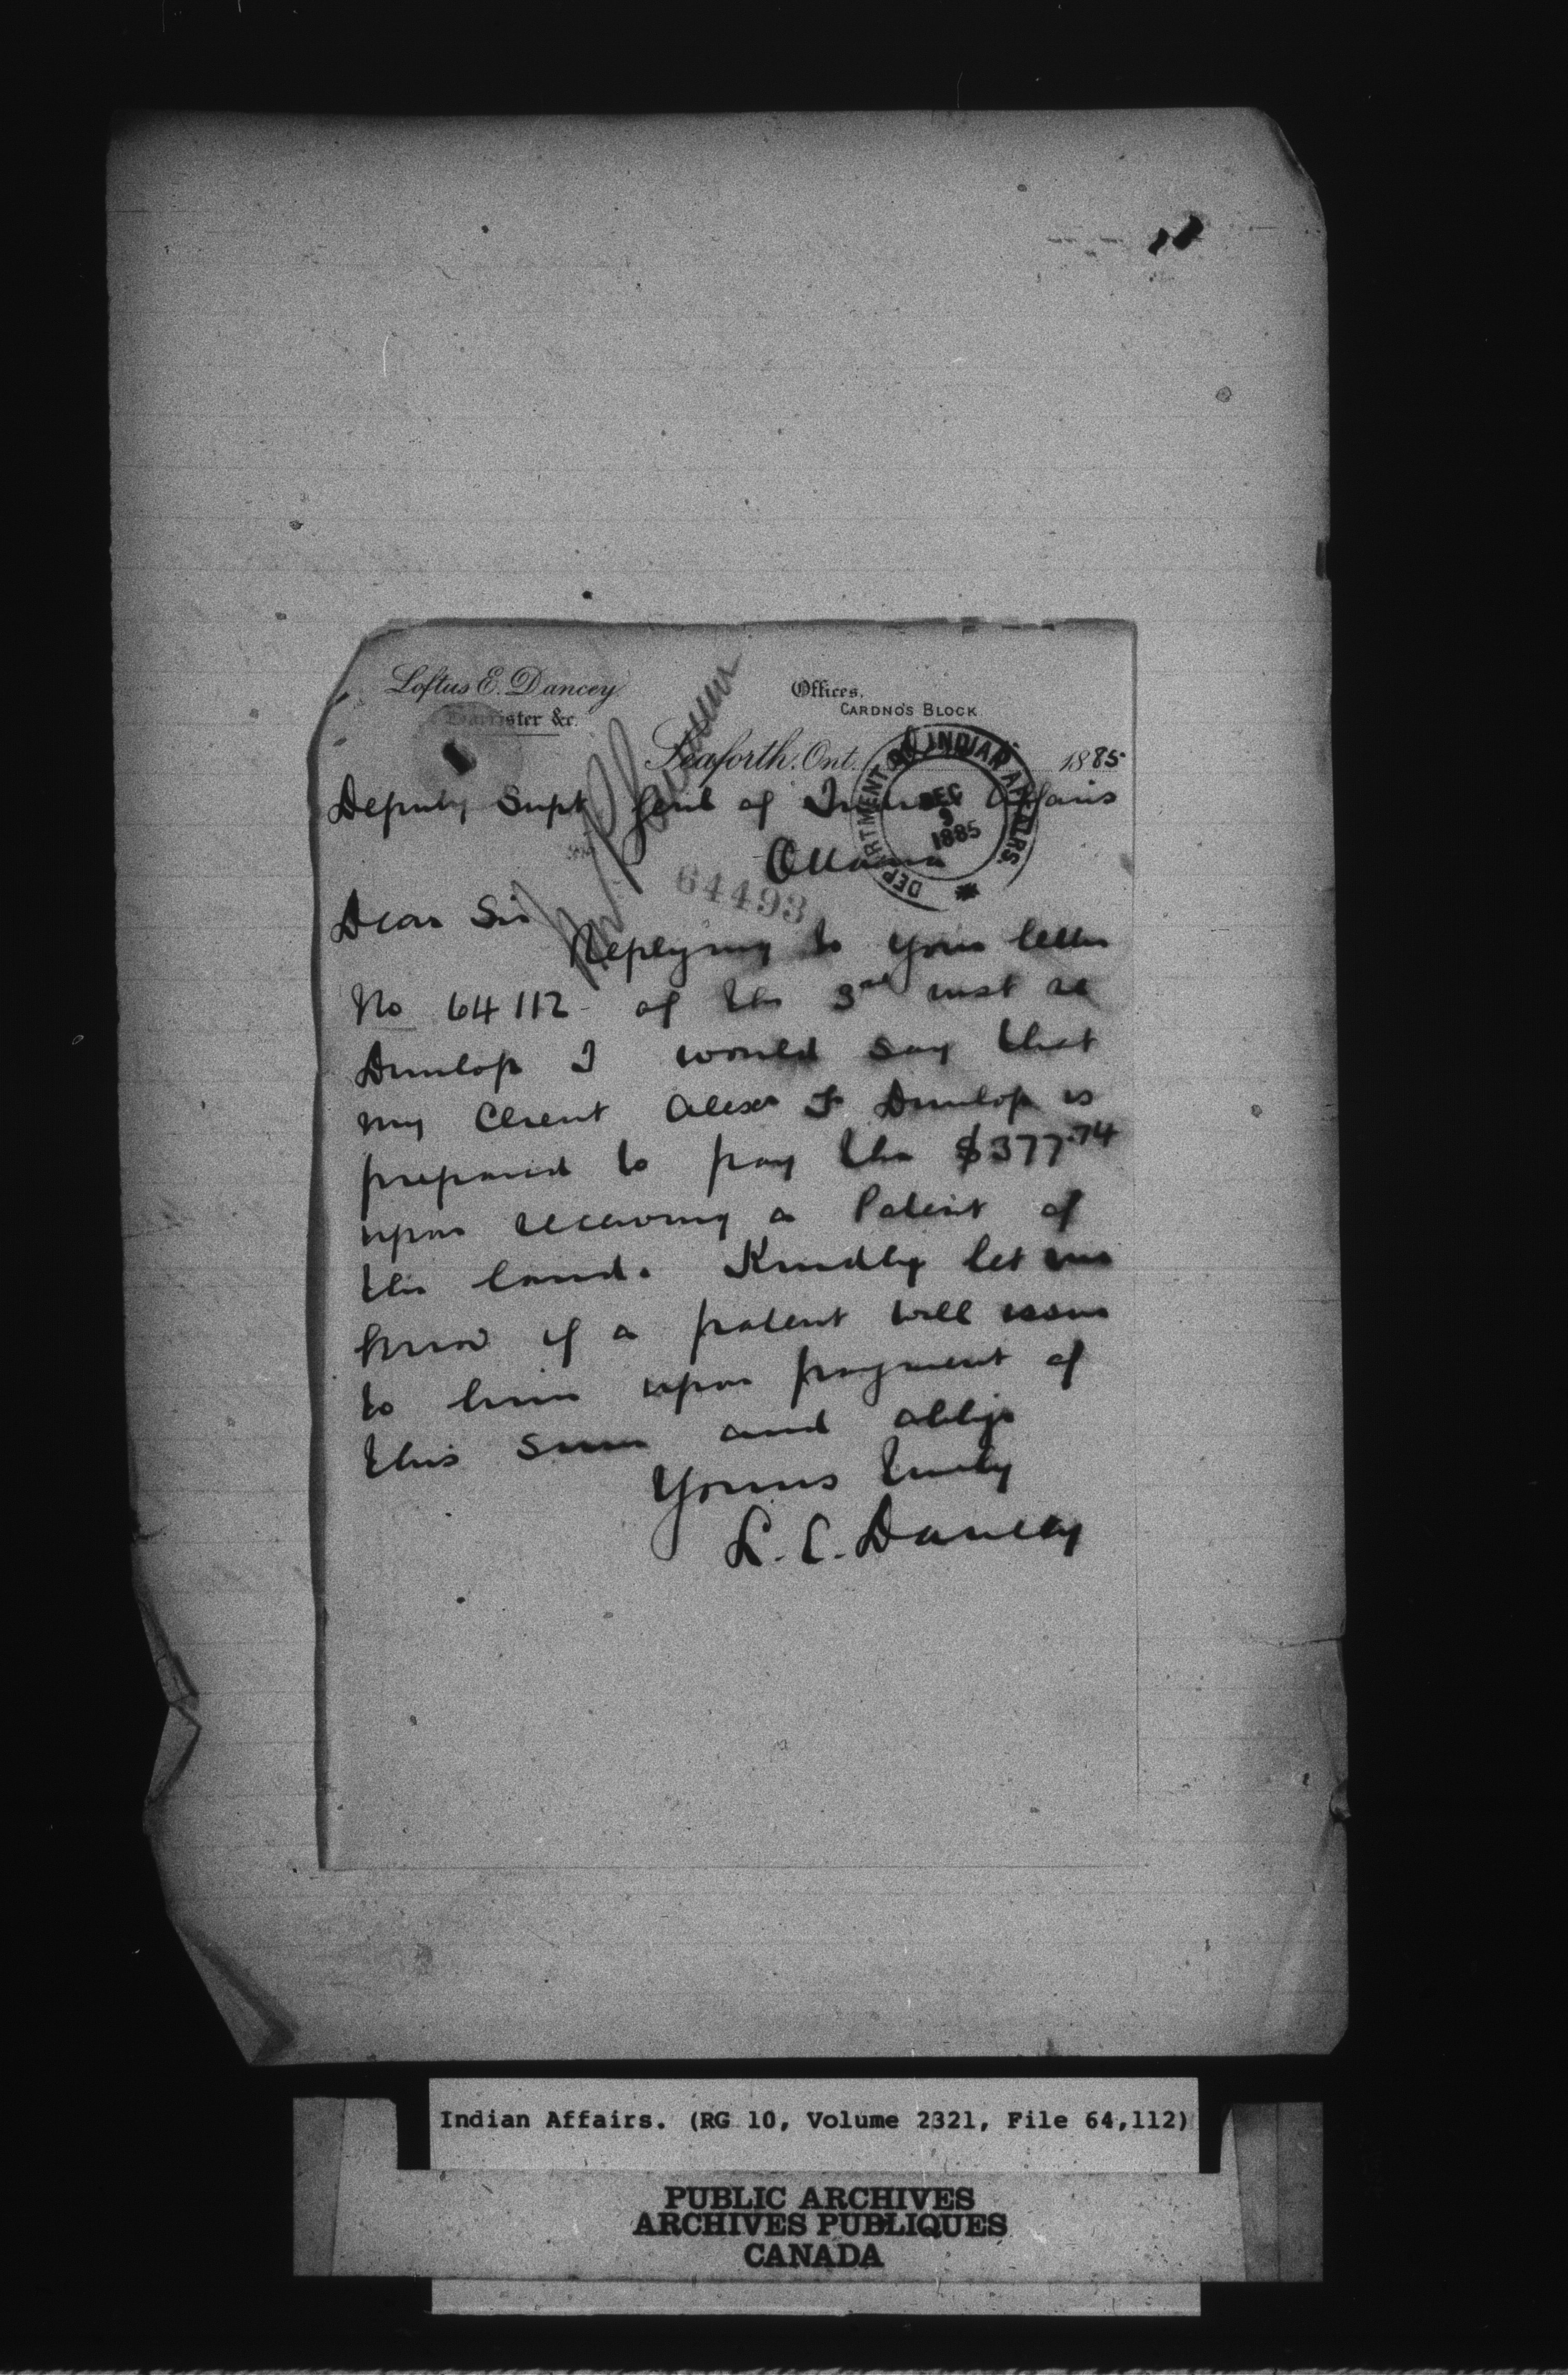 Loftus E. Dancey
Barrister &c.
Offices,
CARDNO'S BLOCK
Seaforth, Ont. 1885
DEPARTMENT OF INDIAN AFFAIRS
DEC
9
1885
Deputy Supt Genl of Indian Affairs
Ottawa
64493
Dear Sir
Replying to your letter
No 64112 of the 3rd inst re
Dunlop I would say that
my Client Alexr Dunlop is
prepared to pay the $377.74
upon receiving a Patent of
the land. Kindly let me
know if a patent will issue
to him upon payment of
this sum and oblige
Yours truly
L. E. Dancey
Indian Affairs. (RG 10, Volume 2321, File 64,112)
PUBLIC ARCHIVES
ARCHIVES PUBLIQUES
CANADA